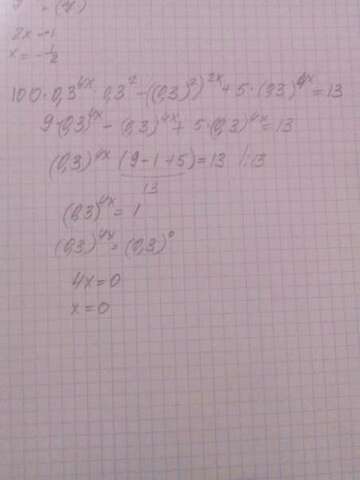 2x = 1
x = -1/2
100·0,3^4x · 0,3^2 - ((0,3)^2)^2x + 5·(0,3)^4x = 13
9·(0,3)^4x - (0,3)^4x + 5·(0,3)^4x = 13
(0,3)^4x (9-1+5) = 13 /:13
13
(0,3)^4x = 1
(0,3)^4x = (0,3)^0
4x = 0
x = 0